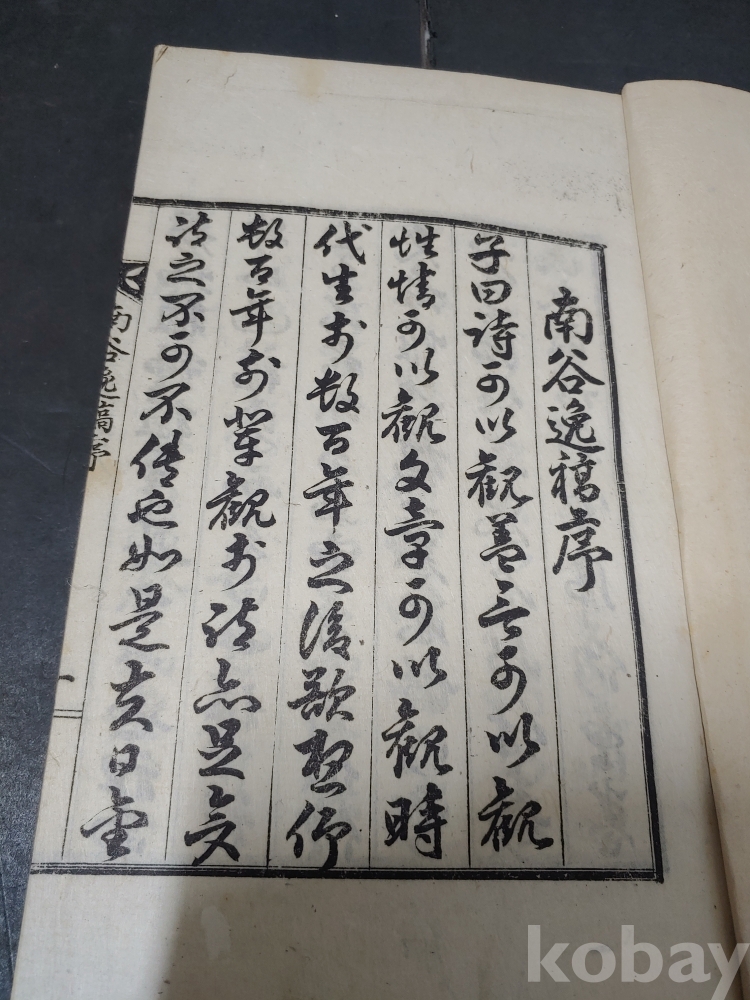 南谷逸稿序
子曰詩可以觀蓋言可以觀
性情可以觀文章可以觀時
代生於數百年之後欲想仰
數百年前輩觀於詩亦足矣
詩之不可不傳也如是夫日金
南谷逸稿序
一
kobay